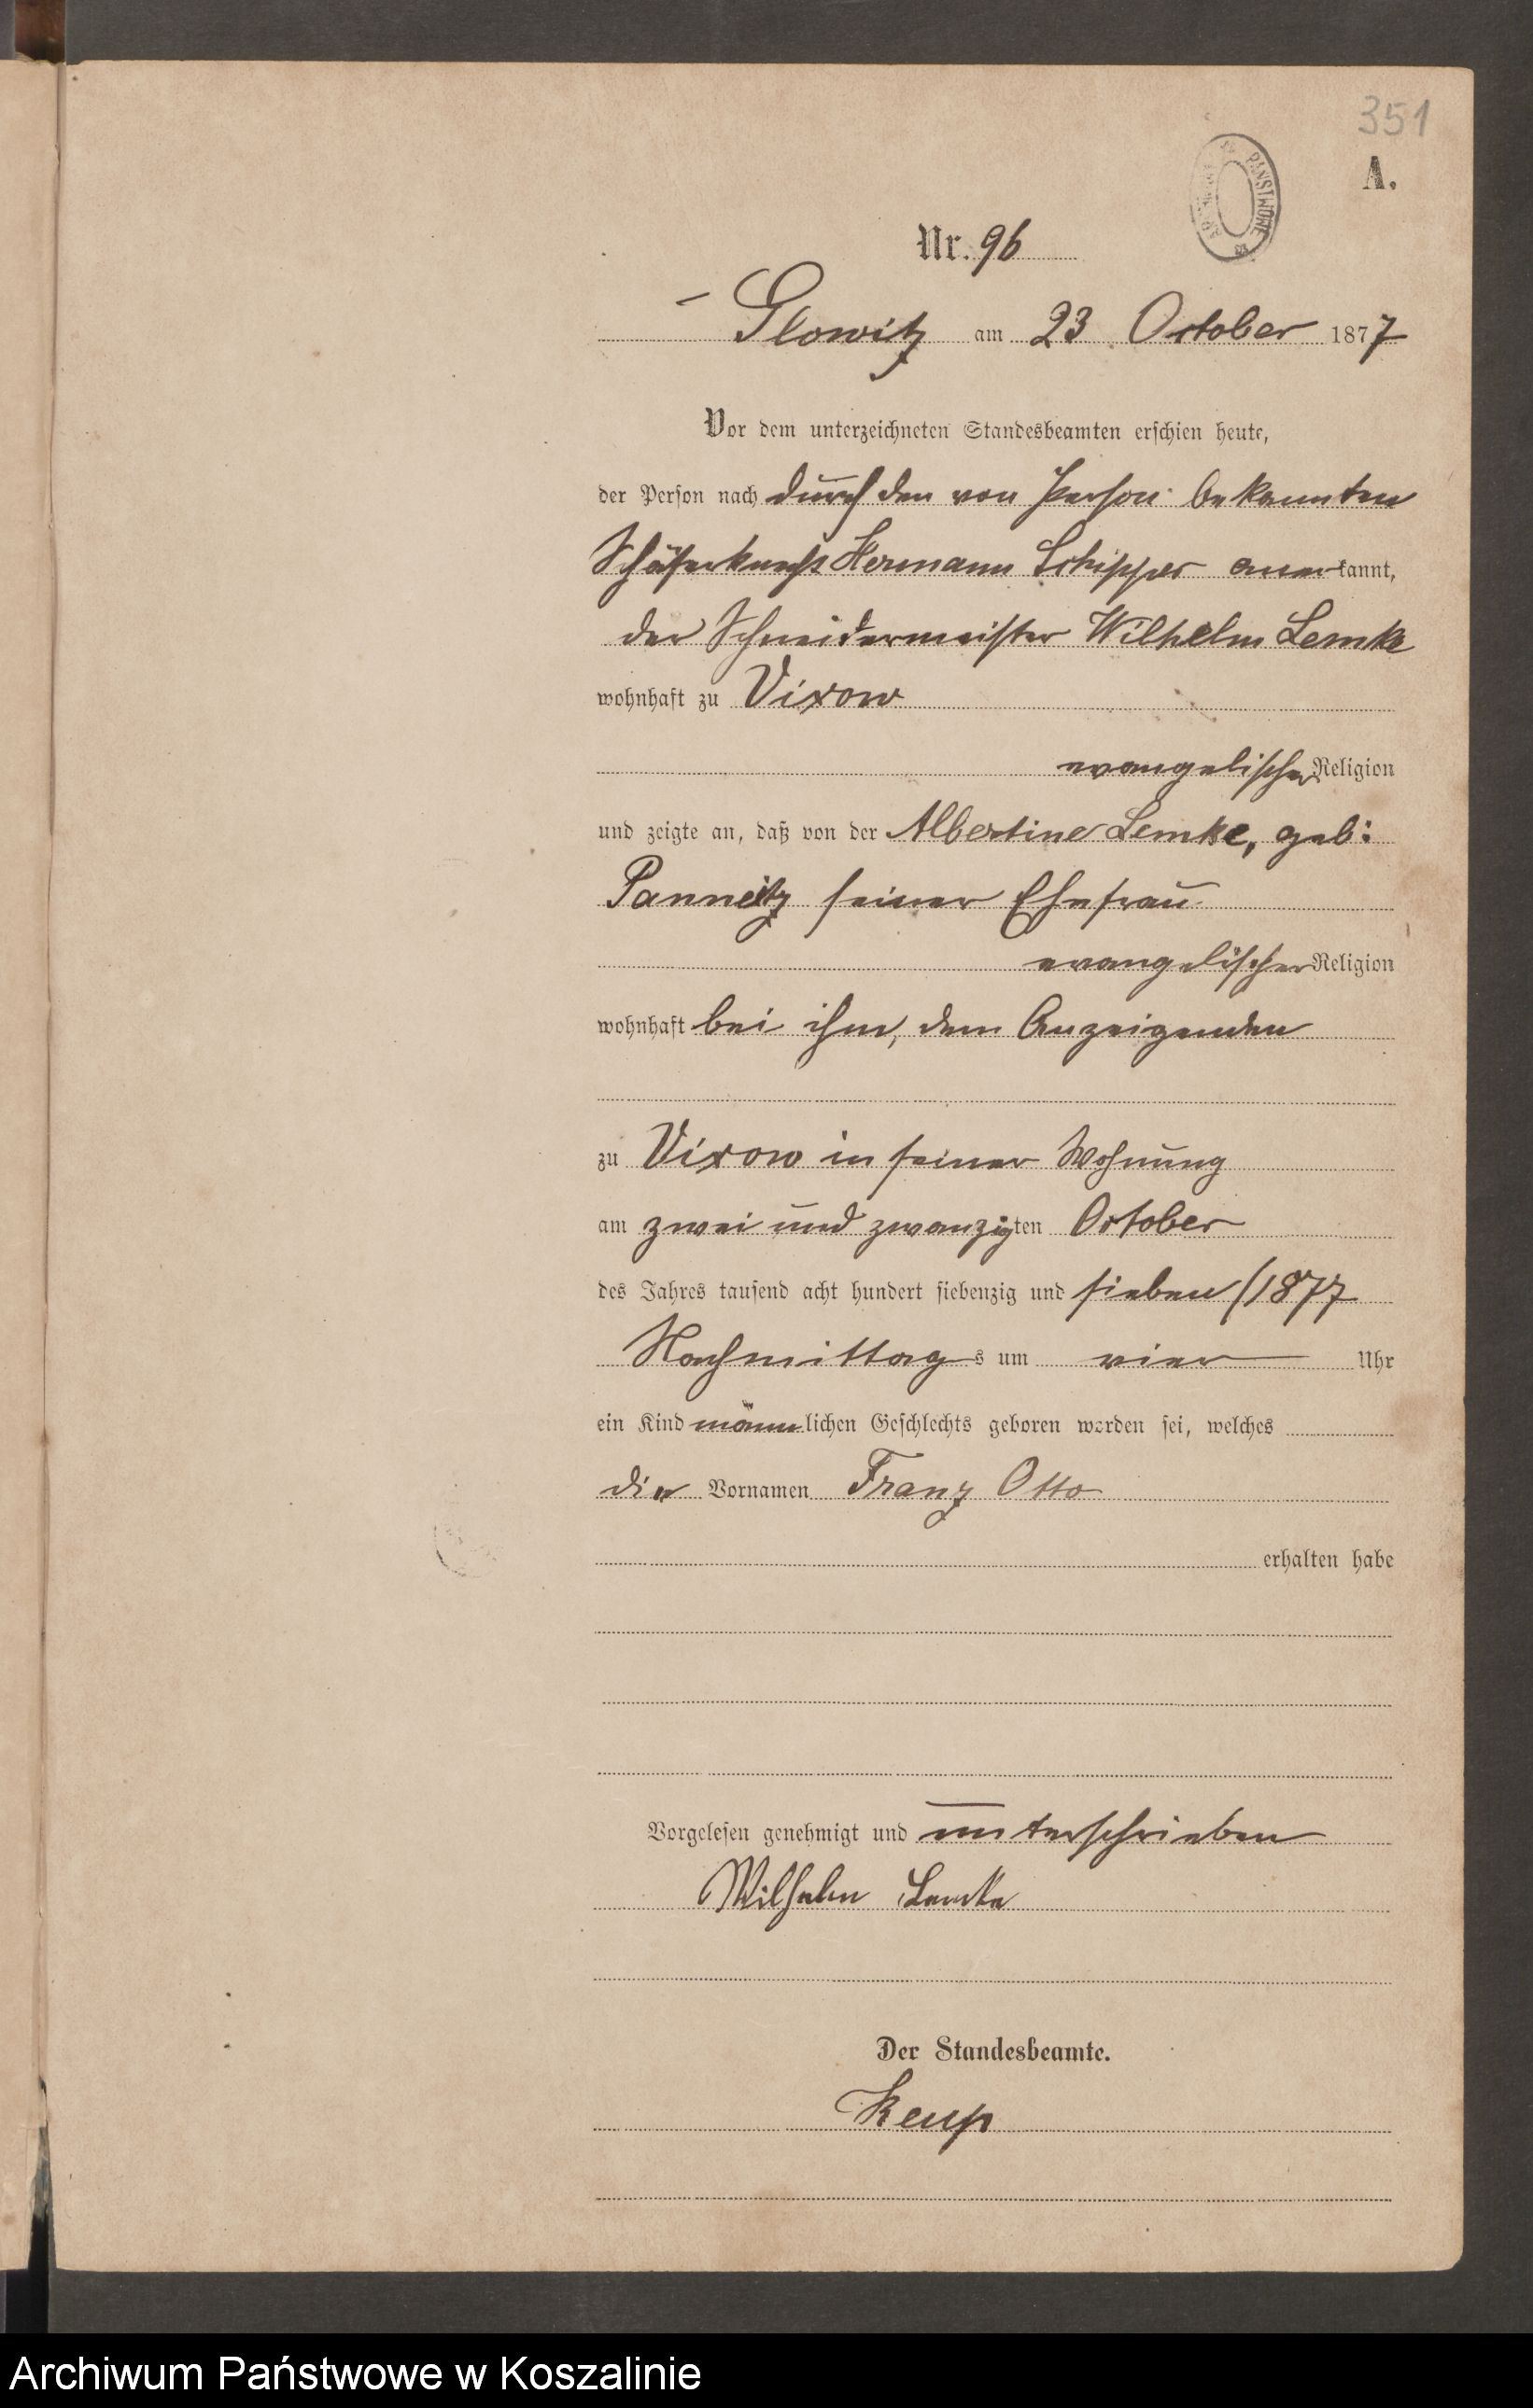 351
A.
PAŃSTWOWE
Nr. 96
Glowitz am 23 October 1877
Vor dem unterzeichneten Standesbeamten erschien heute,
der Person nach durch den von Person bekannten
Schäferknecht Hermann Schipper anerkannt,
der Schneidermeister Wilhelm Lemke
wohnhaft zu Vixow
evangelischer Religion
und zeigte an, daß von der Albertine Lemke, geb:
Panneitz seiner Ehefrau
evangelischer Religion
wohnhaft bei ihm, dem Anzeigenden
zu Vixow in seiner Wohnung
am zwei und zwanzigten October
des Jahres tausend acht hundert siebenzig und sieben (1877
Nachmittags um vier Uhr
ein Kind männlichen Geschlechts geboren worden sei, welches
die Vornamen Franz Otto
erhalten habe
Vorgelesen genehmigt und unterschrieben
Wilhelm Lemke
Der Standesbeamte.
Keup
Archiwum Państwowe w Koszalinie